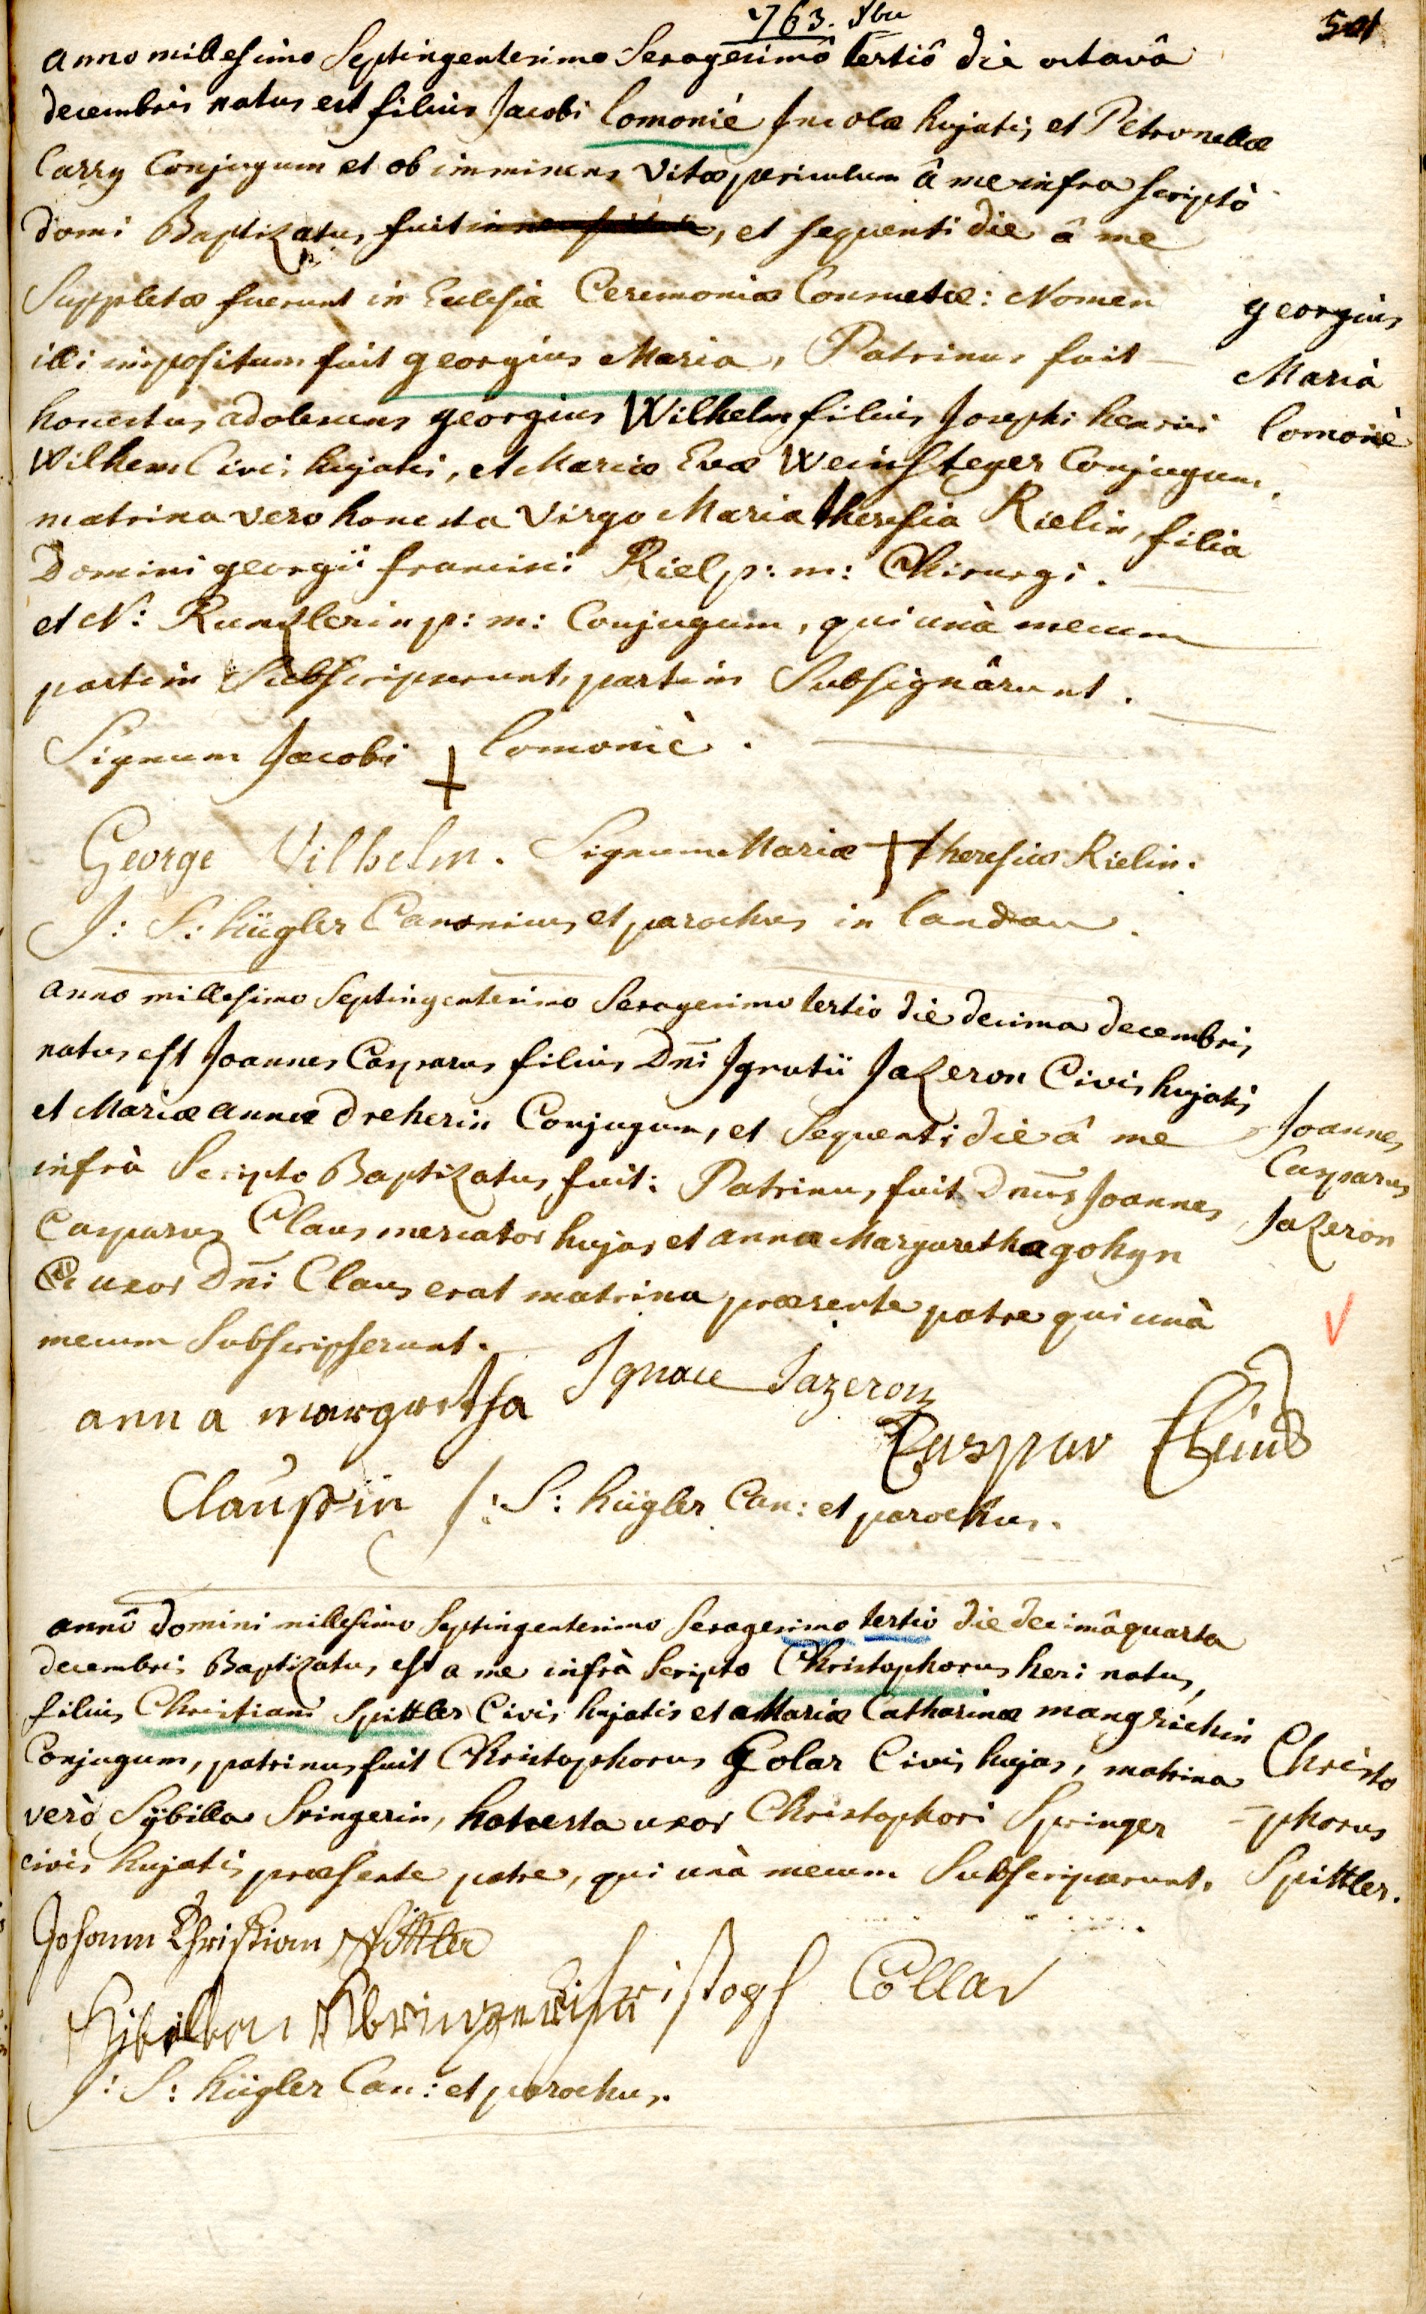 763. Xbre
501
anno millesimo Septingentesimo Sexagesimô tertiô die octavâ
decembris natus est filius Jacobi Lomonié Incolæ hujatis et Petronellæ
Carry Conjugum et ob imminens vitæ periculum â me infra scriptô
domi Baptizatus fuit, et sequenti die â me
Suppletæ fuerunt in Eclesia Ceremoniæ Consuetæ: Nomen
illi impositum fuit georgius Maria, Patrinus fuit
honestus adolescens georgius Wilhelm filius Josephi henrici
Wilhem Civis hujatis, et Mariæ Evæ Weinsteger Conjugum,
matrina vero honesta virgo Maria theresia Rielin, filia
Domini georgii francisci Riel p: m: Chirurgi.
et N: Runtzlerin p: m: Conjugum, qui unà mecum
partim Subscripserunt, partim Subsignârunt.
georgius
Maria
Lomoniè
Signum Jacobi + Lomoniè.
George Vilhelm. Signum Mariæ + theresiæ Rielin.
J: S: hügler Canonicus et parochus in Landau.
anno millesimo Septingentesimo Sexagesimo tertio die decima decembris
natus est Joannes Casparus filius Dñi Ignatii Jazeron Civis hujatis
et Mariæ annæ dreherin Conjugum, et Sequenti die â me
infrà Scripto Baptizatus fuit: Patrinus fuit Dnus Joannes
Casparus Claus mercator hujas et anna Margaretha gohyn
uxor Dñi Claus erat matrina præsente patre qui unà
mecum Subscripserunt.
Joannes
Casparus
Jazeron
Ignace Jazeron
anna margretha
Caspar Clauß
Claußin J: S: hügler Can: et parochus.
annô domini millesimo Septingentesimo Sexagesimo tertio die decimâquarta
decembris Baptizatus est a me infrà Scripto Christophorus heri natus,
filius Christiani Spittler Civis hujatis et Mariæ Catharinæ mangrichin
Conjugum, patrinus fuit Christophorus Golar Civis hujas, matrina
verò Sÿbilla Sringerin, honesta uxor Christophori Springer
civis hujatis præsente patre, qui unà mecum Subscripserunt.
Christo
-phorus
Spittler.
Johann Christian Spittler
Christoph Collar
J: S: hügler Can: et parochus.